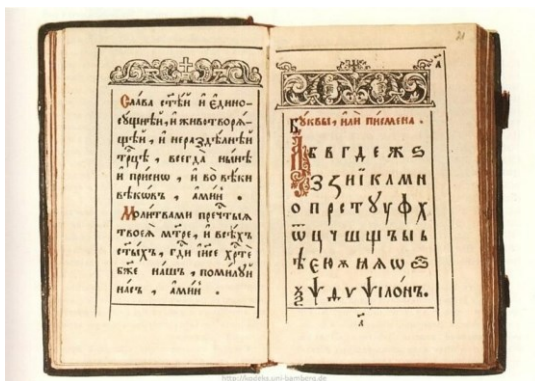 Слава ст҃ѣй и҆ є҆дино-
сꙋщнѣй, и҆ животворѧ-
щѣй, и҆ нераздѣлнѣй
трⷪ҇цѣ, всегда̀ нн҃ѣ
и҆ при́снѡ, и҆ во вѣ́ки
вѣкѡ́въ, а҆ми́нь.
Молитвами пречⷭ҇тыѧ
твоеѧ̀ мт҃ре, и҆ всѣ́хъ
ст҃ы́хъ, гдⷭ҇и і҆и҃се хрⷭ҇те
бж҃е на́шъ, поми́лꙋй
на́съ, а҆ми́нь.
21
Бꙋквы, и҆лѝ писмена.
А Б В Г Д Е Ж Ѕ
З Ꙁ И Ї К Л М Н
О П Р С Т Ѹ Ꙋ Ф Х
Ѿ Ц Ч Ш Щ Ъ Ы Ь
Ѣ Є Ю Ѫ Ꙗ Ѧ Ѡ Ꙍ
Ѯ Ѱ Ѳ Ѵ Ѵ҆ІЛО́НЪ.
http://kodeks.uni-bamberg.de